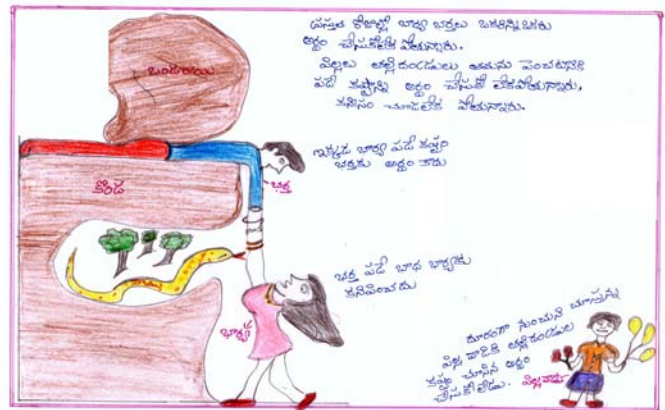 ప్రస్తుత రోజుల్లో భార్య భర్తలు ఒకరినిన్ని ఒకరు
అర్థం చేసుకోలేక పోతున్నారు.
పిల్లలు తల్లిదండ్రులు తమను పెంచటానికి
పడే కష్టాన్ని అర్థం చేసుకో లేకపోతున్నారు,
కనీసం చూడలేక పోతున్నారు.
బండరాయి
ఇక్కడ భార్య పడే కష్టం
భర్తకు అర్థం కాదు
కొండ
భర్త
భర్త పడే బాధ భార్యకు
కనిపించదు
భార్య
దూరంగా నుంచుని చూస్తున్న
పిల్ల వాడికి తల్లిదండ్రుల
కష్టం చూసిన అర్థం
చేసుకోలేడు. పిల్లవాడు